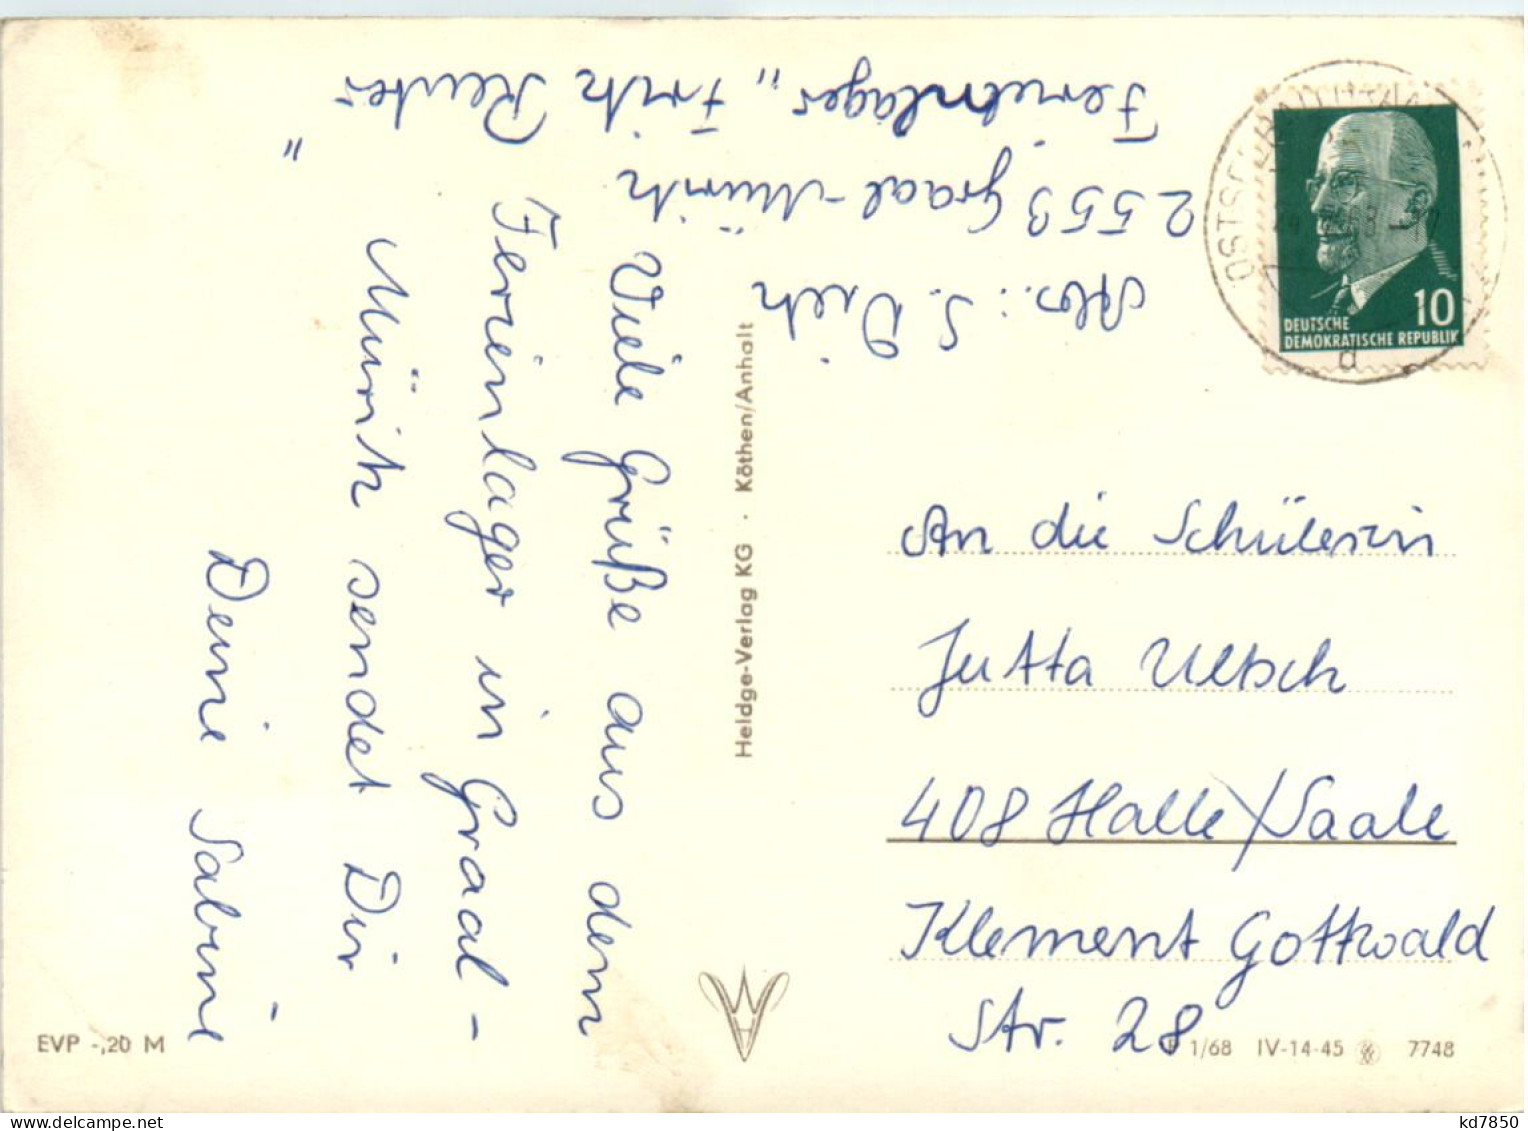 Abs.: S. Dietz
2553 Graal-Müritz
Ferienlager „Fritz Reuter
"
Viele Grüße aus dem
Ferienlager in Graal-
Müritz sendet Dir
Deine Sabine
Heldge-Verlag KG · Köthen/Anhalt
10
DEUTSCHE
DEMOKRATISCHE REPUBLIK
OSTSEEBAD GRAAL
d
An die Schülerin
Jutta Ultsch
408 Halle/Saale
Klement Gottwald
Str. 28
EVP -,20 M
1/68 IV-14-45 7748
kd7850